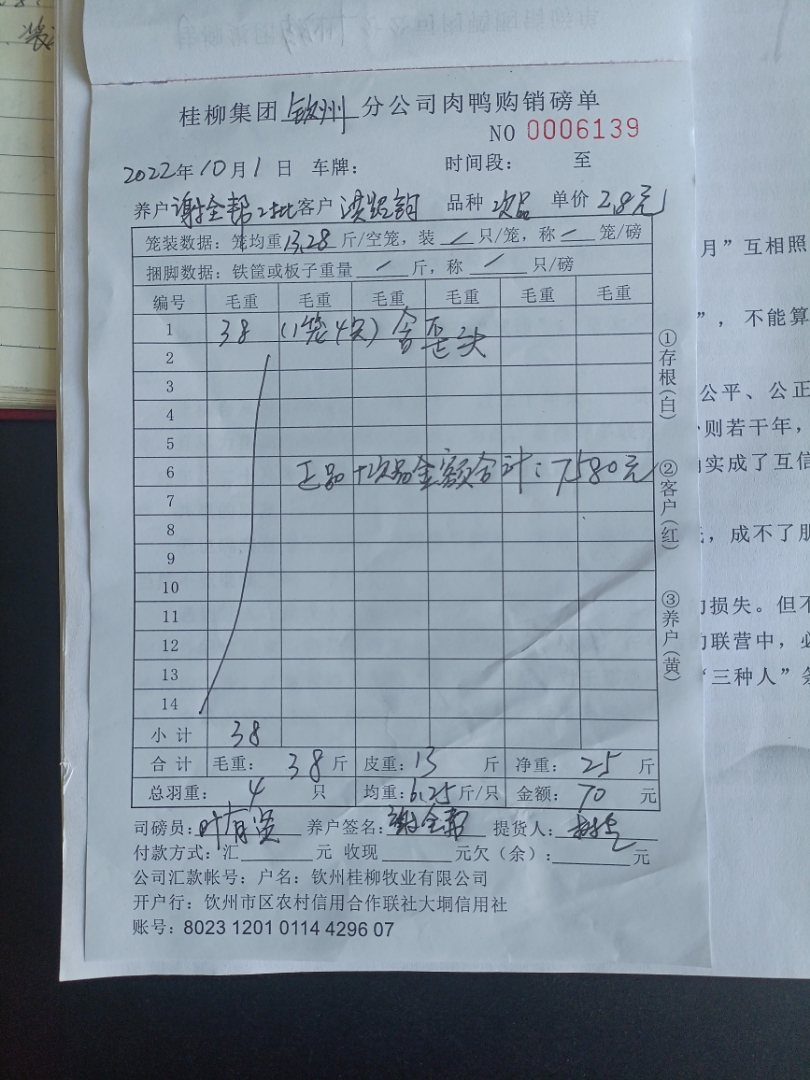 桂柳集团 钦州 分公司肉鸭购销磅单
NO 0006139
2022年10月1日 车牌： 时间段： 至
养户 谢全帮2批 客户 品种 次品 单价 2.8元
笼装数据：笼均重13.28斤/空笼，装／只/笼，称／笼/磅
捆脚数据：铁筐或板子重量／斤，称／只/磅
编号 毛重 毛重 毛重 毛重 毛重 毛重
1 38 (1袋4只) 含歪头
2
3
4
5
6 正品+次品金额合计：7580元
7
8
9
10
11
12
13
14
小计 38
合计 毛重：38斤 皮重：13斤 净重：25斤
总羽重：4只 均重：6.25斤/只 金额：70元
司磅员：叶有 养户签名：谢全帮 提货人：
付款方式：汇 元 收现 元欠（余）： 元
公司汇款帐号：户名：钦州桂柳牧业有限公司
开户行：钦州市区农村信用合作联社大垌信用社
账号：8023 1201 0114 4296 07
①存根（白）
②客户（红）
③养户（黄）
月”互相照
”，不能算
公平、公正
则若干年，
实成了互信
，成不了朋
损失。但不
联营中，必
“三种人”条